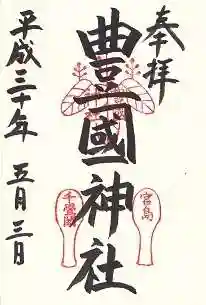 奉拝
豊國神社
宮島
千畳閣
平成三十年 五月三日